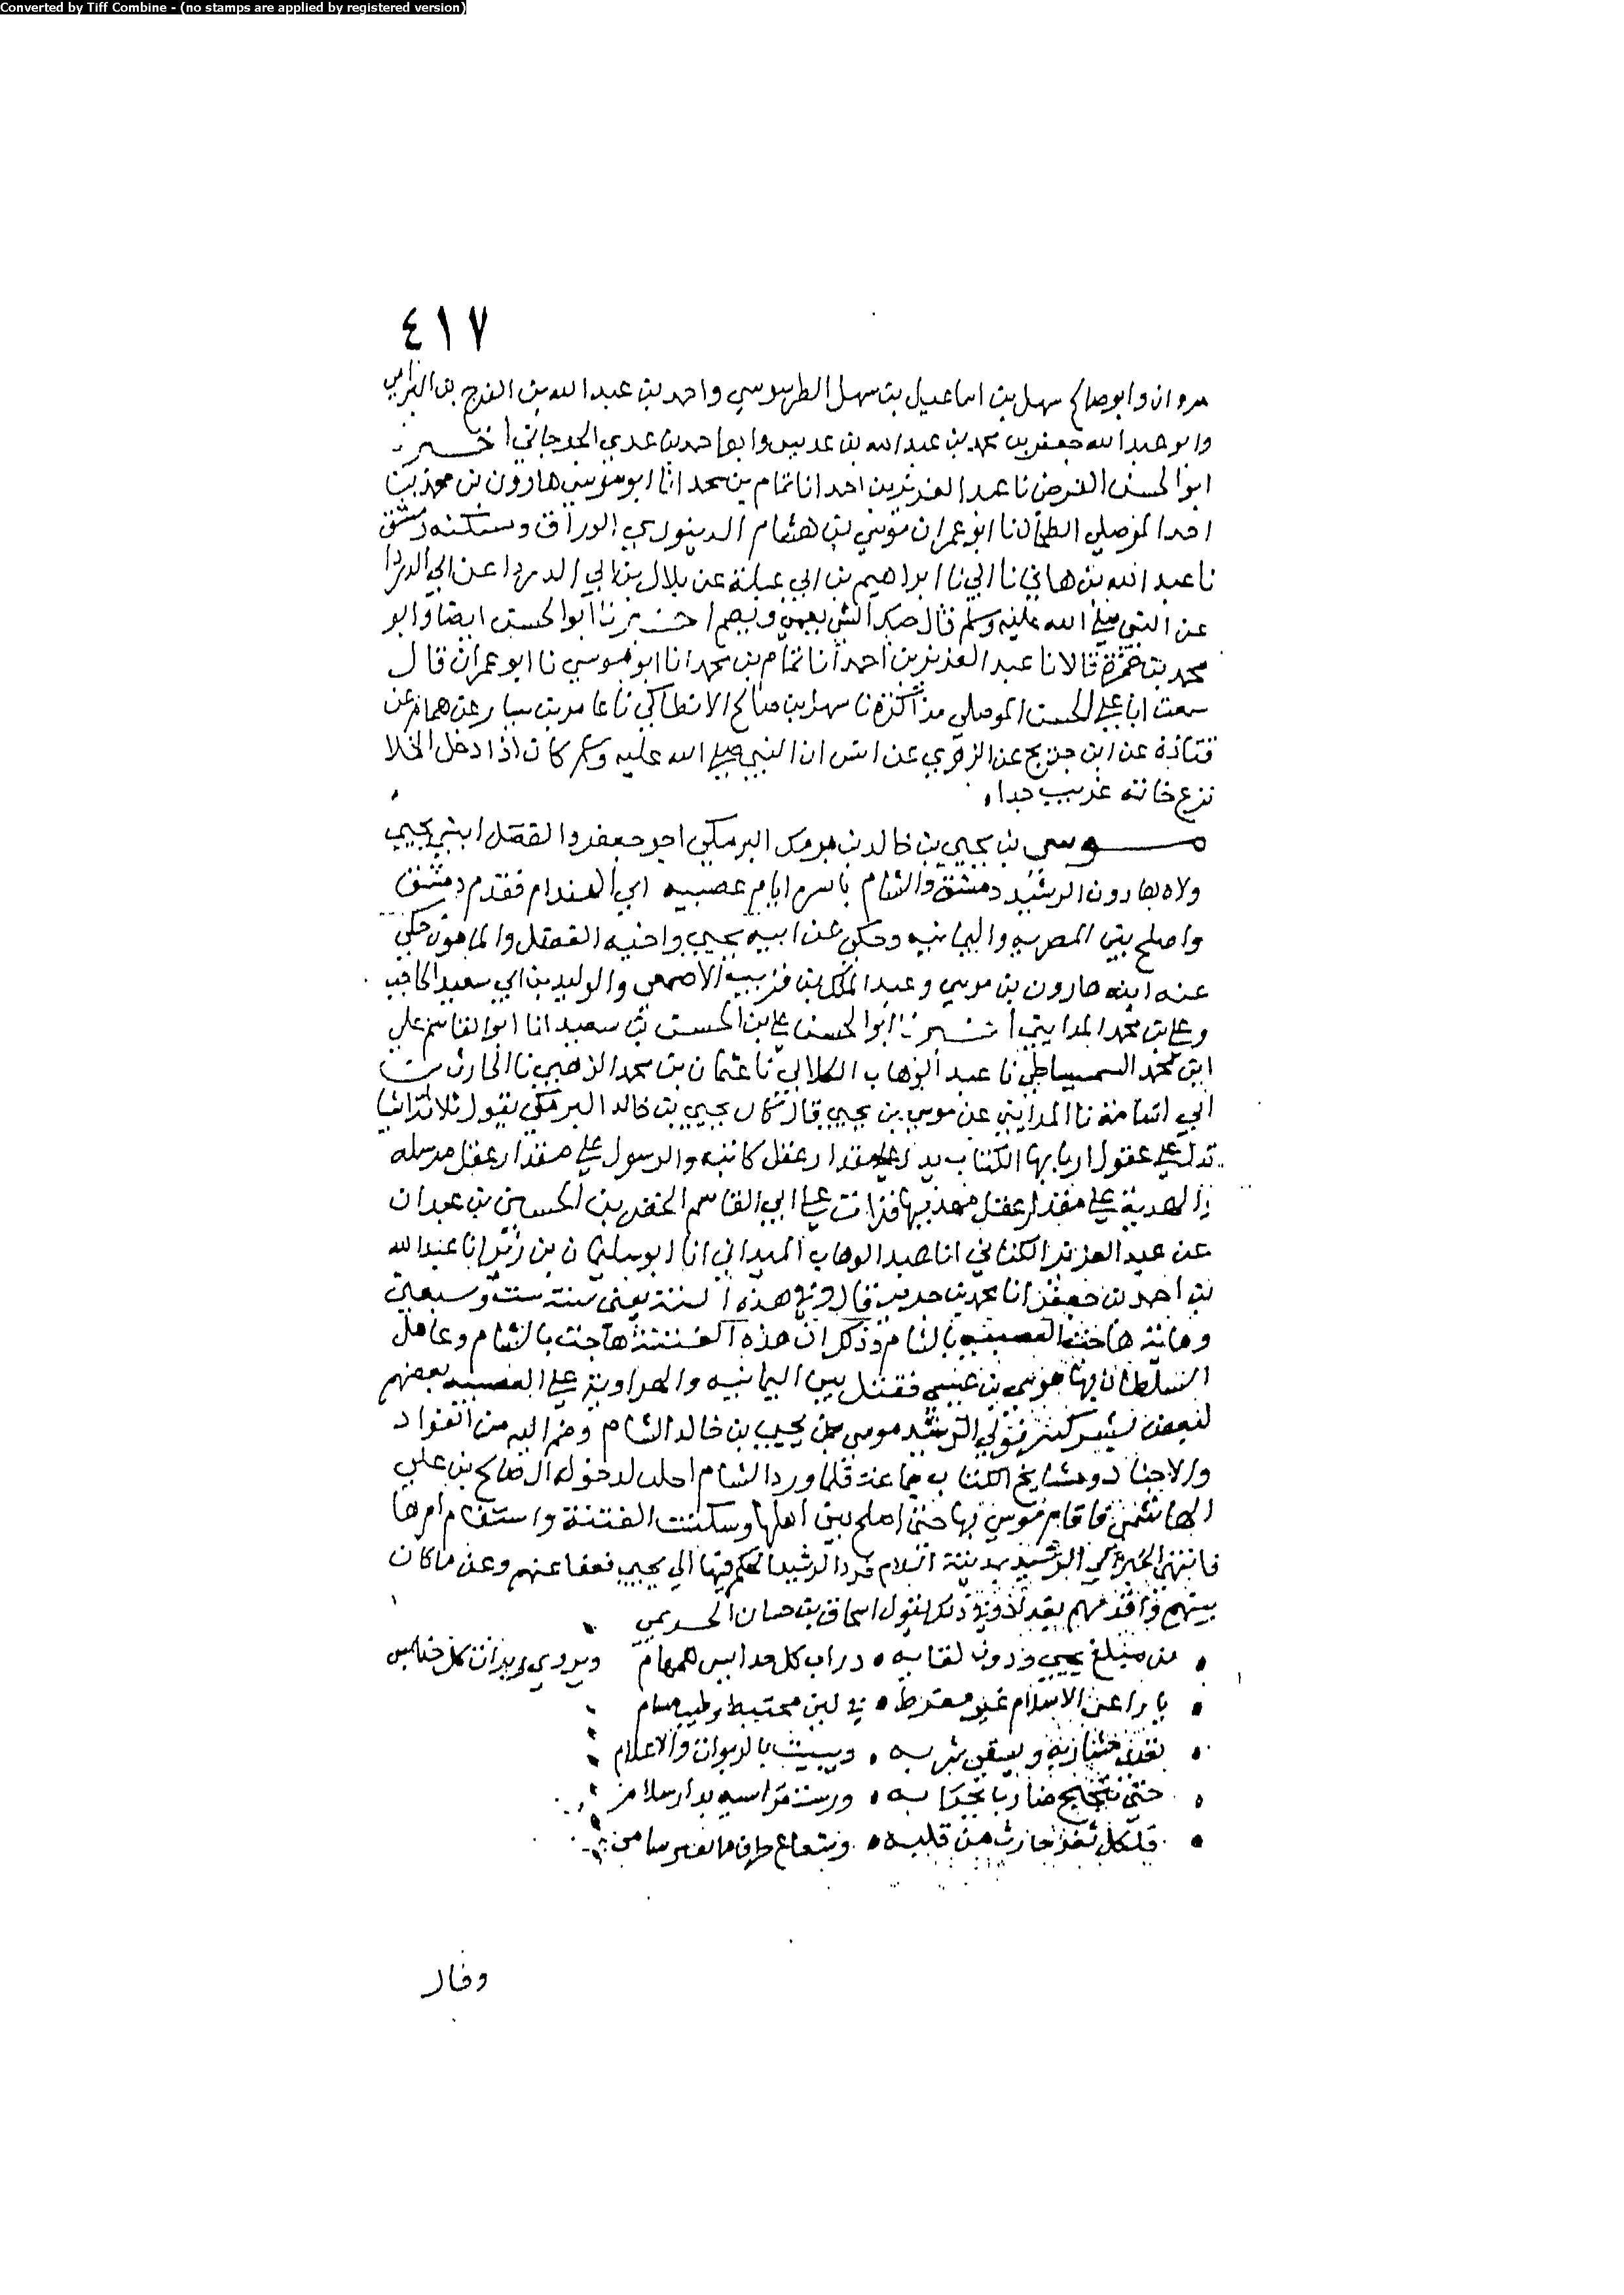 Converted by Tiff Combine - (no stamps are applied by registered version)
٤١٧
مروان وابو صالح سهل بن اسماعيل بن سهل الطرسوسي واحمد بن عبد الله بن الفرج بن البرامي
وابو عبد الله جعفر بن محمد بن عبد الله بن عديس وابو احمد بن عدي الجرجاني اخبرنا
ابو الحسن الفرضي نا عبد العزيز بن احمد انا تمام بن محمد انا ابو موسي هارون بن محمد بن
احمد الموصلي الطحان نا ابو عمران موسي بن هشام الدينوري الوراق وسكنه دمشق
نا عبد الله بن هاني نا ابي نا ابراهيم بن ابي عبلة عن بلال بن ابي الدردا عن ابي الدردا
عن النبي صلى الله عليه وسلم قال حبك الشي يعمي ويصم اخبرنا ابو الحسن ايضا وابو
محمد بن حمزة قالا نا عبد العزيز بن احمد انا تمام بن محمد انا ابو موسي نا ابو عمران قال
سمعت ابا علي الحسن الموصلي مذاكرة نا سهل بن صالح الانطاكي نا عامر بن سيار عن همام عن
قتادة عن ابن جريج عن الزهري عن انس ان النبي صلى الله عليه وسلم كان اذا دخل الخلا
نزع خاتمه غريب جدا
موسي بن يحيي بن خالد بن برمك البرمكي اخو جعفر والفضل ابني يحيي
ولاه هارون الرشيد دمشق والشام باسره ايام عصبيه ابي الهندام فقدم دمشق
واصلح بين المضريه واليمانيه وحكي عن ابيه يحيي واخيه الفضل والمامون حكي
عنه ابنه هارون بن موسي وعبد الملك بن قريب الاصمعي والوليد بن ابي سعيد الحاجب
وعلي بن محمد المدايني اخبرنا ابو الحسن علي بن الحسن بن سعيد انا ابو القاسم علي
ابن محمد السميساطي نا عبد الوهاب الكلابي نا عثمان بن محمد الذهبي نا الحارث بن
ابي اسامة نا المدايني عن موسي بن يحيي قال كان يحيي بن خالد البرمكي يقول ثلاثة اشيا
تدل علي عقول اربابها الكتاب يدل علي مقدار عقل كاتبه والرسول علي مقدار عقل مرسله
والهدية علي مقدار عقل مهديها قرات علي ابي القاسم الخضر بن الحسين بن عبدان
عن عبد العزيز الكتاني انا عبد الوهاب الميداني انا ابو سليمان بن زبر انا عبد الله
بن احمد بن جعفر انا محمد بن جرير قال وفي هذه السنة يعني سنة ست وسبعين
ومائة هاجت العصبيه بالشام وذكر ان هذه الفتنة هاجت بالشام وعامل
السلطان بها موسي بن عيسي فقتل بين اليمانيه والنزارية علي العصبيه بعضهم
لبعض بشر كثير فولي الرشيد موسي بن يحيي بن خالد الشام وضم اليه من القواد
والاجناد ومشايخ الكتاب جماعة فلما ورد الشام احلت لدخوله ال صالح بن علي
الهاشمي فاقام موسي بها حتي اصلح بين اهلها وسكنت الفتنة واستقام امرها
فانتهي الخبر الي الرشيد بمدينة السلام فرد الرشيد الحكم فيها الي يحيي فعفا عنهم وعن ما كان
بينهم واقدمهم بغداذ وفي ذلك يقول اسحاق بن حسان الخريمي
من مبلغ يحيي ودون لقايه درات كل مدابس همهام ويروي زيرات كل خنابس
يا راعي الاسلام غير مفرط في لين مختبط وطيب مسام
تغذي مشاربه ويسقي شربه ويبيت بالربوات والاعلام
حتي تنخنخ ضاربا بجرانه ورست مراسيه بدار سلام
فلكل ثغر حارث من قلبه وشعاع طرف ما يفتر سامي
وقال